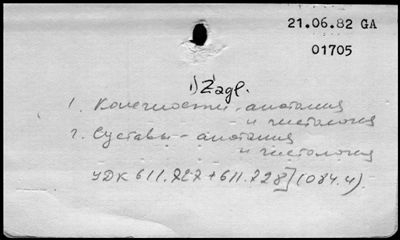 21.06.82 GA
01705
1) Zagl.
1. Конечности - анатомия
и гистология
2. Суставы - анатомия
и гистология
УДК 611.727+611.728](084.4).